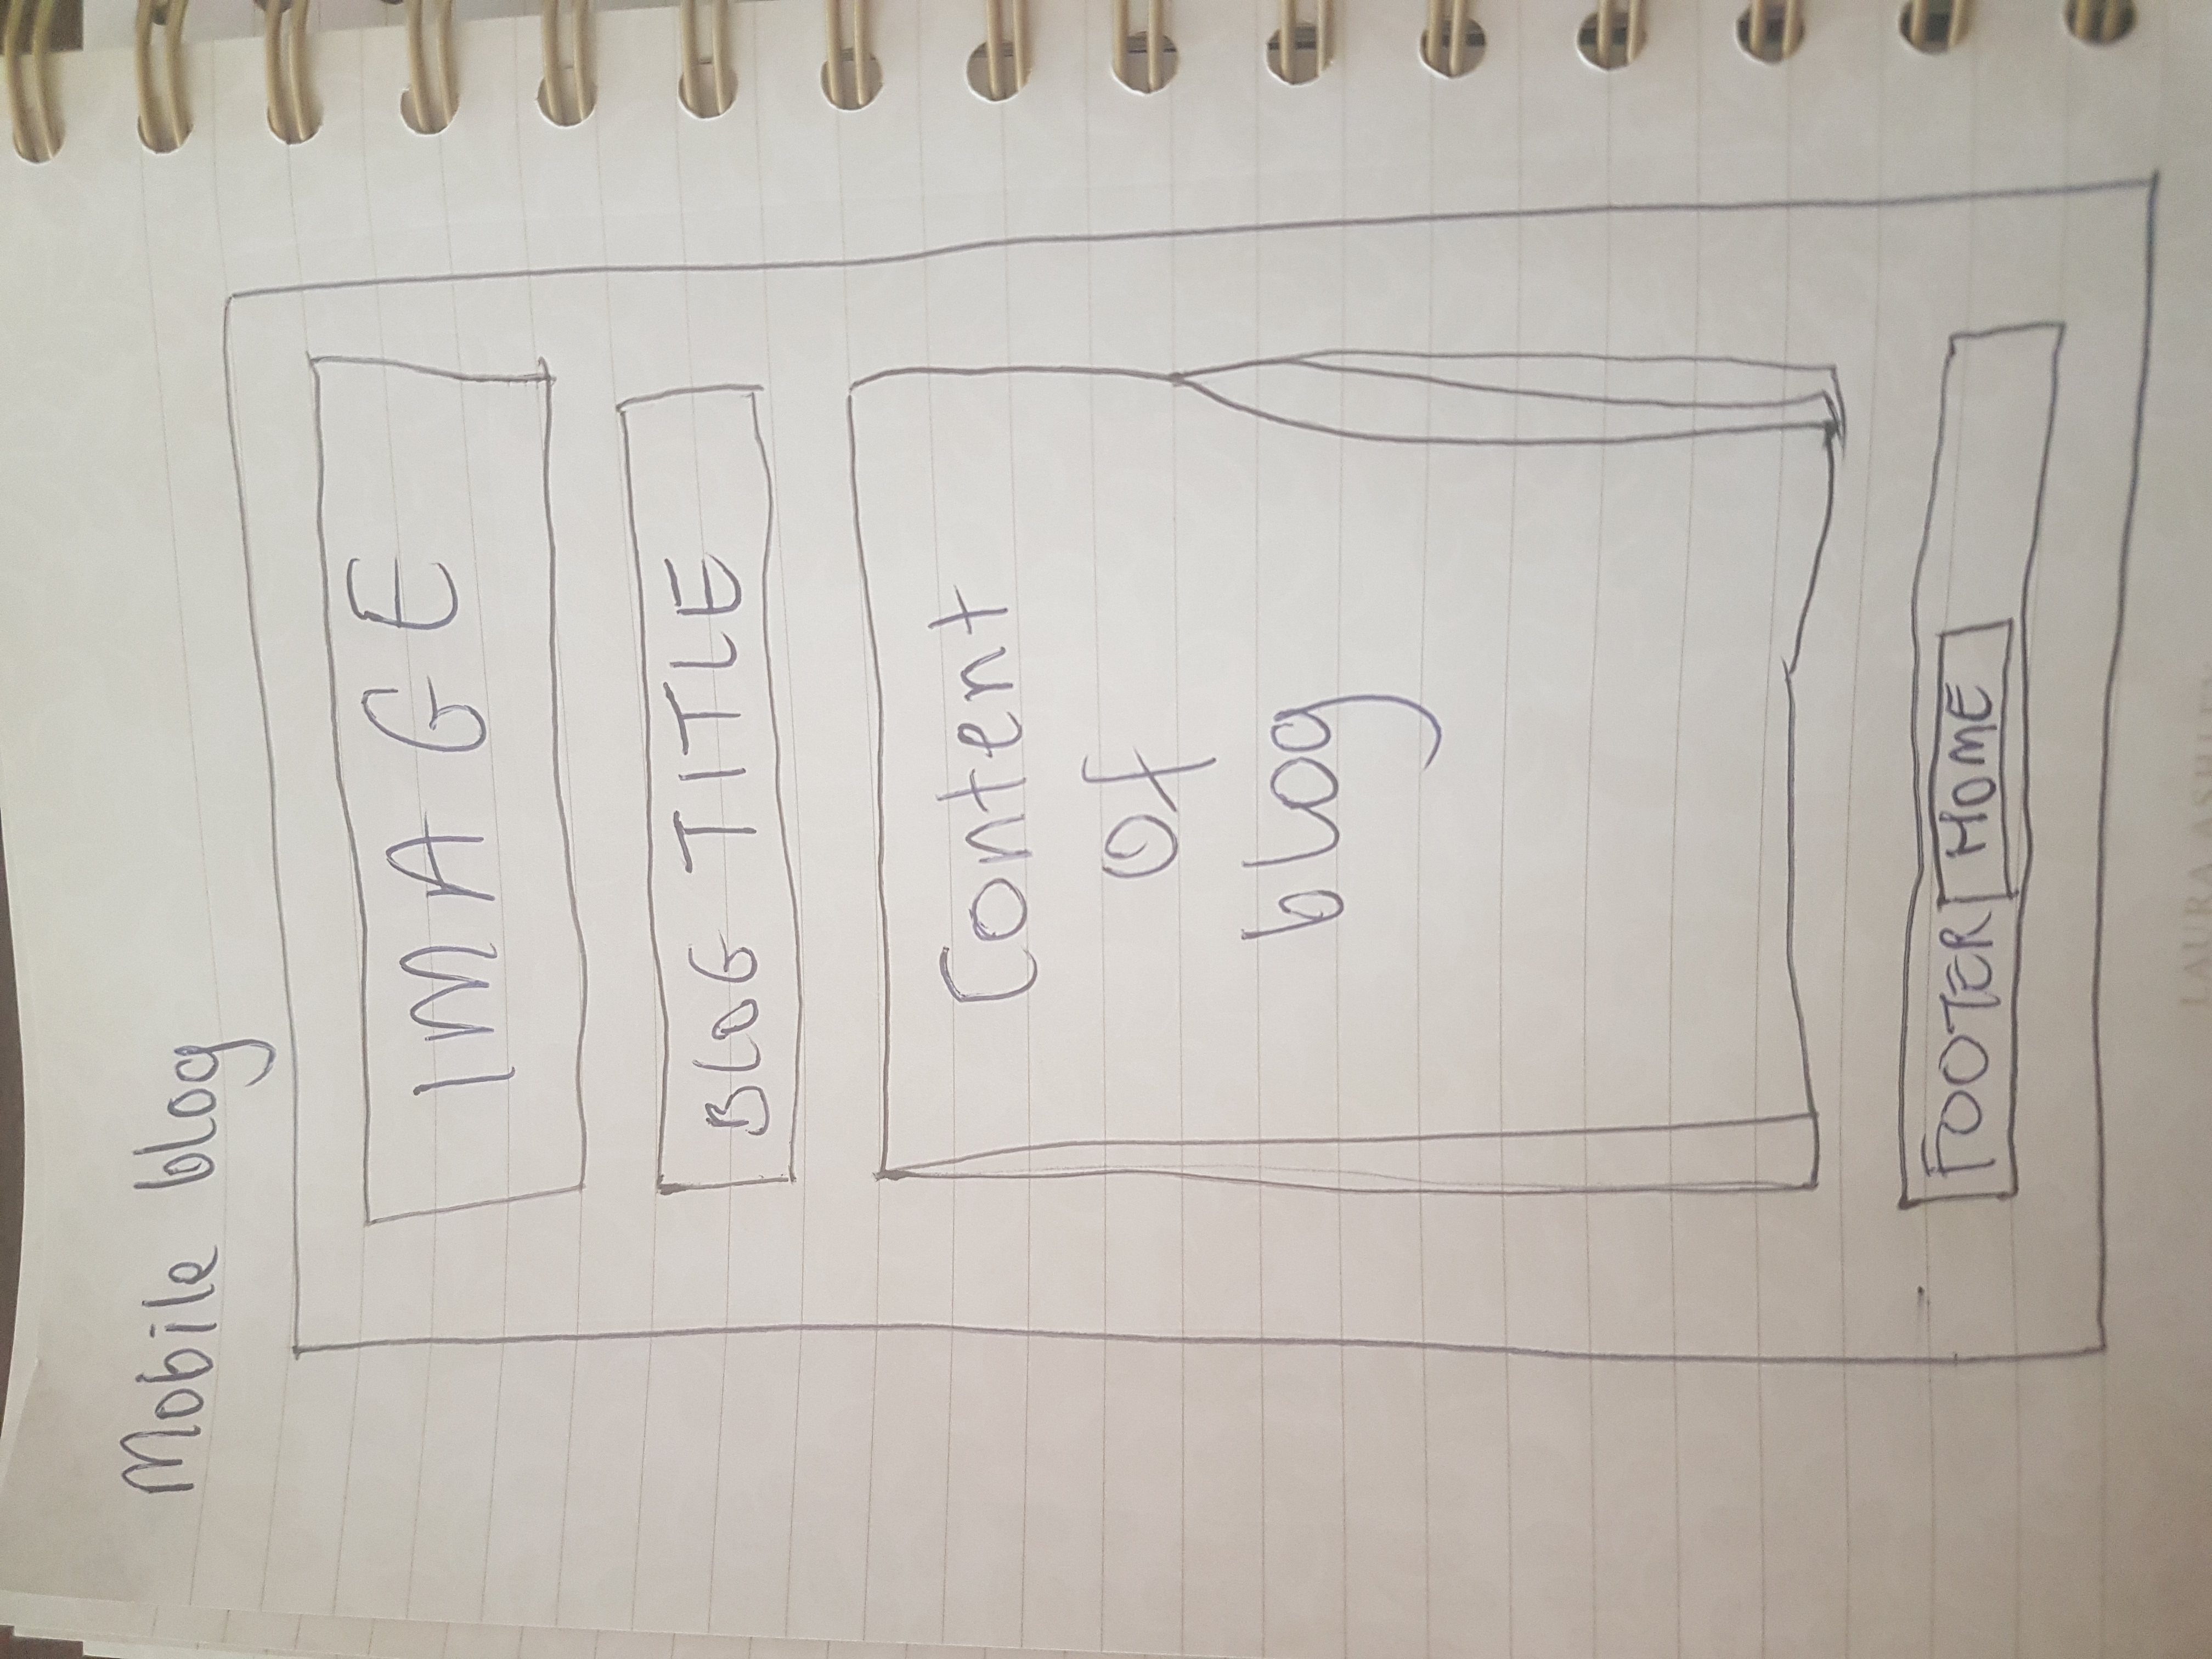 Mobile blog
IMAGE
BLOG TITLE
Content
of
blog
FOOTER HOME
LAURA ASHLEY